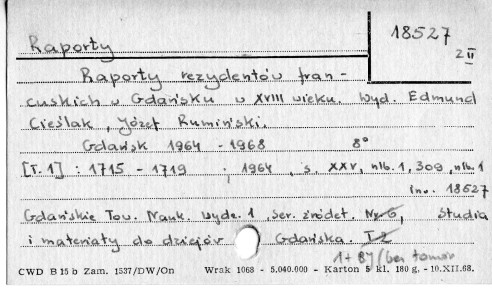 18527
2 II
Raporty
Raporty rezydentów fran-
cuskich w Gdańsku w XVIII wieku. Wyd. Edmund
Cieślak, Józef Rumiński.
Gdańsk 1964 - 1968 8°
[T. 1] : 1715 - 1719 ; 1964, s. XXV, nlb. 1, 309, nlb. 1
inw. 18527
Gdańskie Tow. Nauk. Wydz. 1, Ser. źródeł. Nr 6, Studia
i materiały do dziejów Gdańska. T. 2
1 + 87/bez tomów
CWD B 15 b Zam. 1537/DW/On Wrak 1068 - 5.040.000 - Karton 5 kl. 180 g. - 10.XII.68.